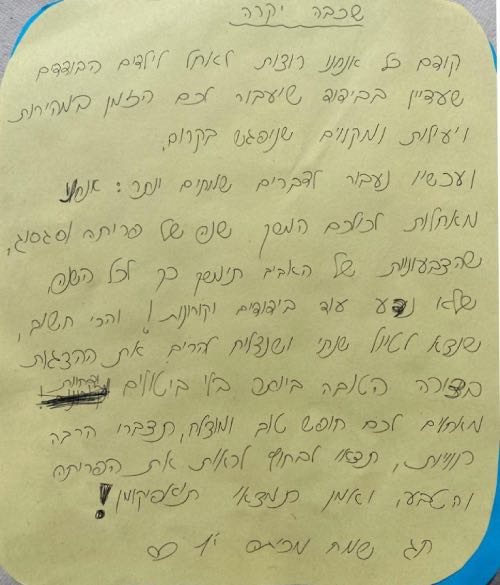 שכבה יקרה
קודם כל אנחנו רוצות לאחל לילדים הבודדים
שעדיין בבידוד שיעבור לכם הזמן במהירות
ויעילות ומקווים שניפגש בקרוב.
ועכשיו נעבור לדברים שמחים יותר: אנחנו
מאחלות לכולכם המשך שנה של פריחה ושגשוג,
שהצבעוניות של האביב תימשך כך לכל השנה,
שלא נדע עוד בידודים וקורונות! והכי חשוב,
שנצא לטיול שנתי ושנצליח להרים את ההצגות
בצורה הטובה ביותר בלי ביטולים
מאחלים לכם חופש טוב ומוצלח, תצברו הרבה
חוויות, תצאו לבחוץ לראות את הפריחה
והטבע, ואמן תמצאו תאפיקומן!
חג שמח מכיתה י'1